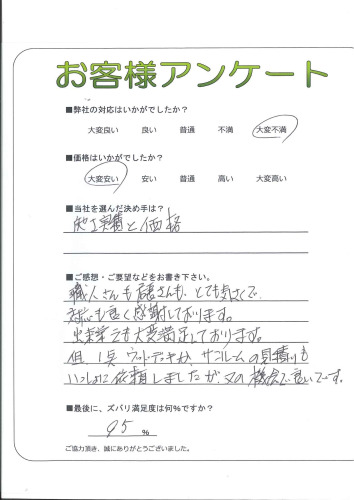 お客様アンケート
■弊社の対応はいかがでしたか?
大変良い 良い 普通 不満 大変不満
■価格はいかがでしたか?
大変安い 安い 普通 高い 大変高い
■当社を選んだ決め手は?
施工実績と価格
■ご感想・ご要望などをお書き下さい。
職人さんも店長さんも、とても気さくで
対応も良く感謝しております。
出来栄えも大変満足しております。
但、1点 ウッドデッキか サンルームの見積りも
いっしょに依頼しましたが、又の機会で良いです。
■最後に、ズバリ満足度は何%ですか?
95 %
ご協力頂き、誠にありがとうございました。